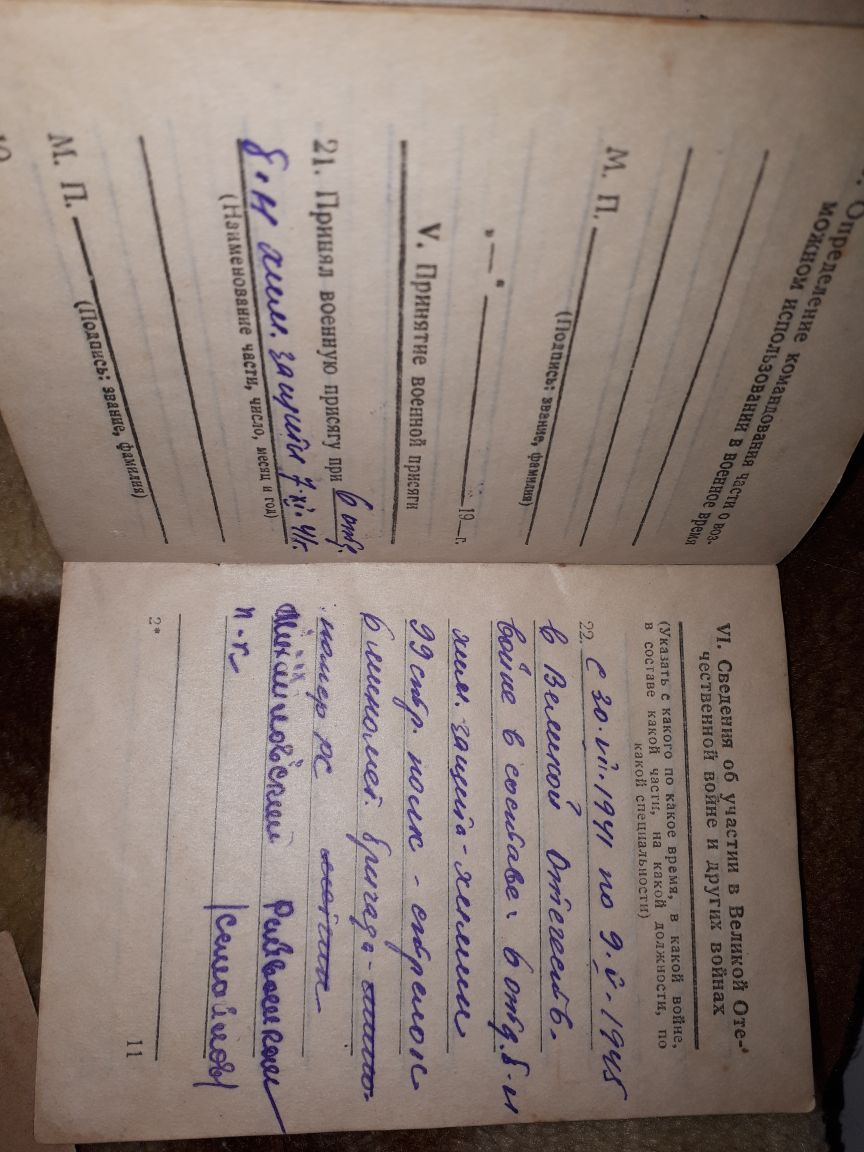 Определение командования части о воз-
можном использовании в военное время
М. П.
(Подпись: звание, фамилия)
„—“ 19—г.
V. Принятие военной присяги
21. Принял военную присягу при 6 отд.
б-н хим. защиты 7.XI.41г.
(Наименование части, число, месяц и год)
М. П.
(Подпись: звание, фамилия)
VI. Сведения об участии в Великой Оте-
чественной войне и других войнах
(Указать с какого по какое время, в какой войне,
в составе какой части, на какой должности, по
какой специальности)
22. С 30.VII.1941 по 9.V.1945
в Великой Отечеств.
войне в составе: 6 отд. б-н
хим. защита-химик
99 стр. полк - стрелок
6 миномет. бригада-
номер РС
п-п
/Самойлов/
2*
11